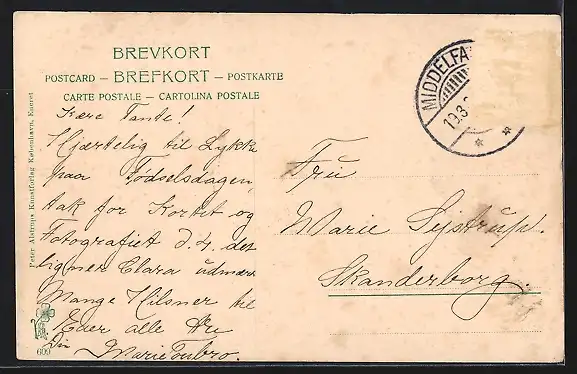 BREVKORT
POSTCARD – BREFKORT – POSTKARTE
CARTE POSTALE – CARTOLINA POSTALE
Kære Tante!
Hjærtelig til Lykke
paa Fødselsdagen,
tak for Kortet og
Fotografiet d. 4. det
ligner Clara udmær.
Mange Hilsner til
Eder alle
Din Marie Toubro.
Peter Alstrups Kunstforlag København, Eneret
609
MIDDELFA
19.8
Fru
Marie Sejstrup.
Skanderborg.